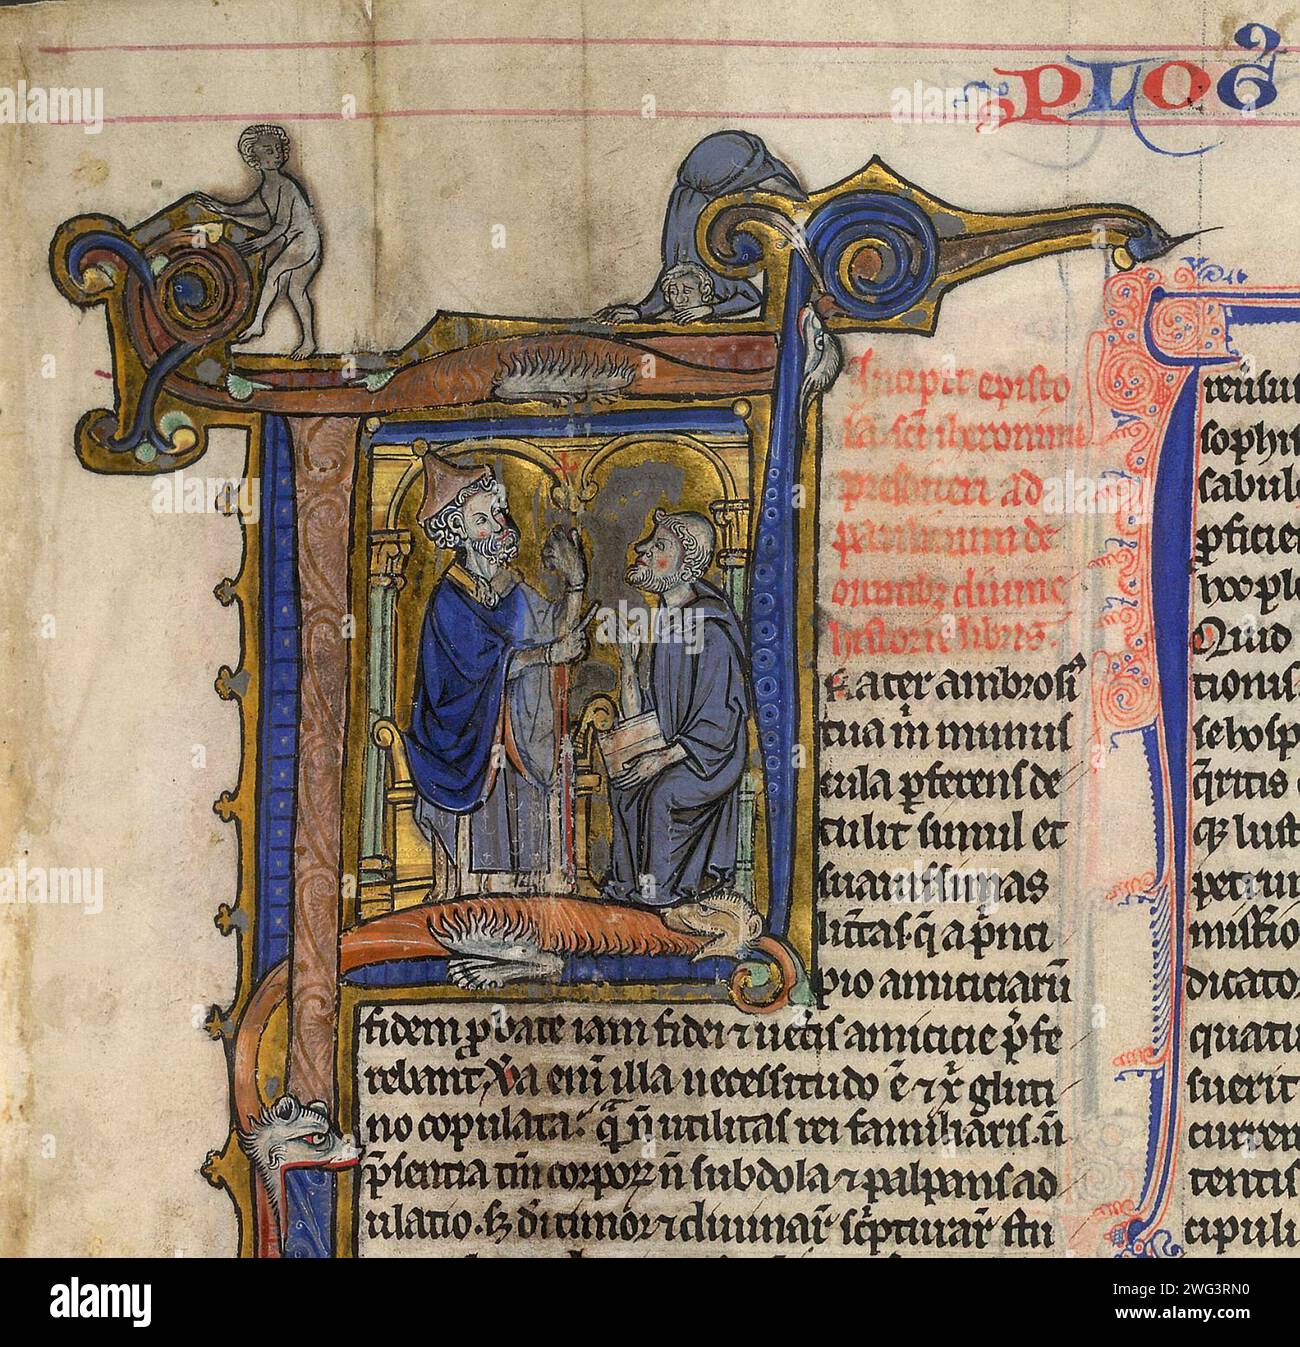 PLOG9
Incipit episto
la sci iheronimi
presbiteri ad
paulinum de
omnibȝ diuine
historie libris.
Frater ambrosiꝰ
tua in munus
cula ꝑferens de
tulit simul et
suauissimas
litt̃as. q̃ a pͥnci
pio amiciciarũ
fidem ꝓbate iam fidei ⁊ uet̃is amicicie p̃fe
rebant. Ṽa eni illa necessitudo ẽ ⁊ xp̃i gluti
no copulata. quã ñ utilitas rei familiaris. ñ
p̃sentia tm̃ corporꝝ ñ subdola ⁊ palpans ad
ulatio. sȝ dĩ timor ⁊ diuinaꝝ sc̃pturaꝝ stu
reuisus
sophis
fabul
ꝓficie
hoc plo
Quid
tionis
se hosp
q̃ritis
quȝ lust
petrum
missio
dicator
quatu
fuerit
curren
tentis
cipuli
alamy
Image ID: 2WG3RN0
www.alamy.com